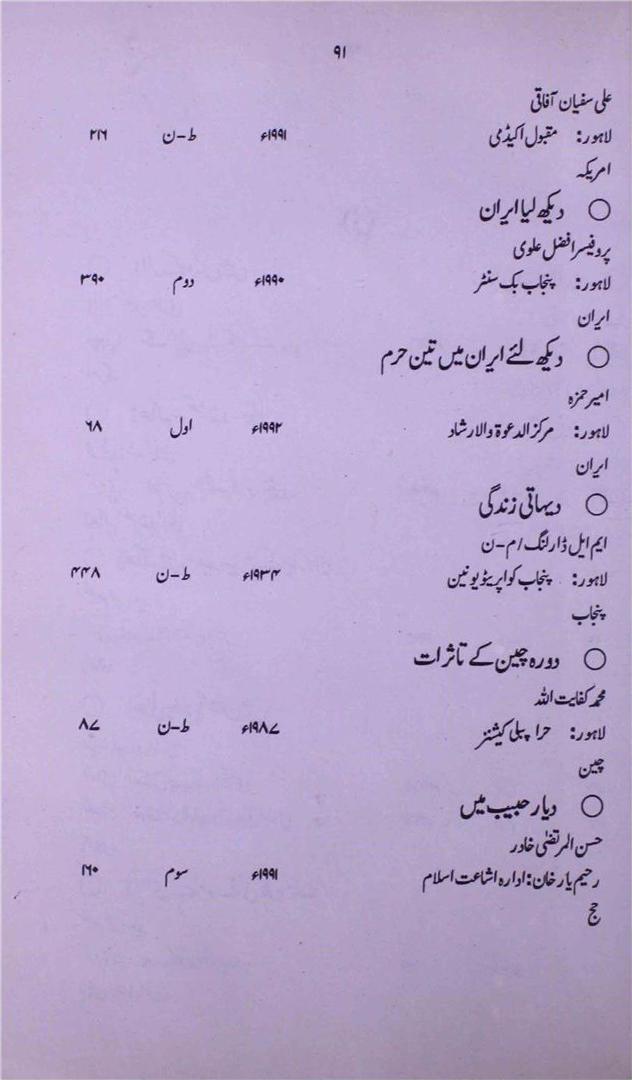 ۹۱
علی سفیان آفاقی
لاہور: مقبول اکیڈمی ۱۹۹۱ء ط-ن ۲۱۶
امریکہ
○ دیکھ لیا ایران
پروفیسر افضل علوی
لاہور: پنجاب بک سنٹر ۱۹۹۰ء دوم ۳۹۰
ایران
○ دیکھ لئے ایران میں تین حرم
امیر حمزہ
لاہور: مرکز الدعوۃ والارشاد ۱۹۹۲ء اول ۶۸
ایران
○ دیہاتی زندگی
ایم ایل ڈارلنگ / م-ن
لاہور: پنجاب کواپریٹو یونین ۱۹۳۴ء ط-ن ۴۴۸
پنجاب
○ دورہ چین کے تاثرات
محمد کفایت اللہ
لاہور: حرا پبلی کیشنز ۱۹۸۷ء ط-ن ۸۷
چین
○ دیار حبیب میں
حسن المرتضیٰ خاور
رحیم یار خان: ادارہ اشاعت اسلام ۱۹۹۱ء سوم ۱۶۰
حج